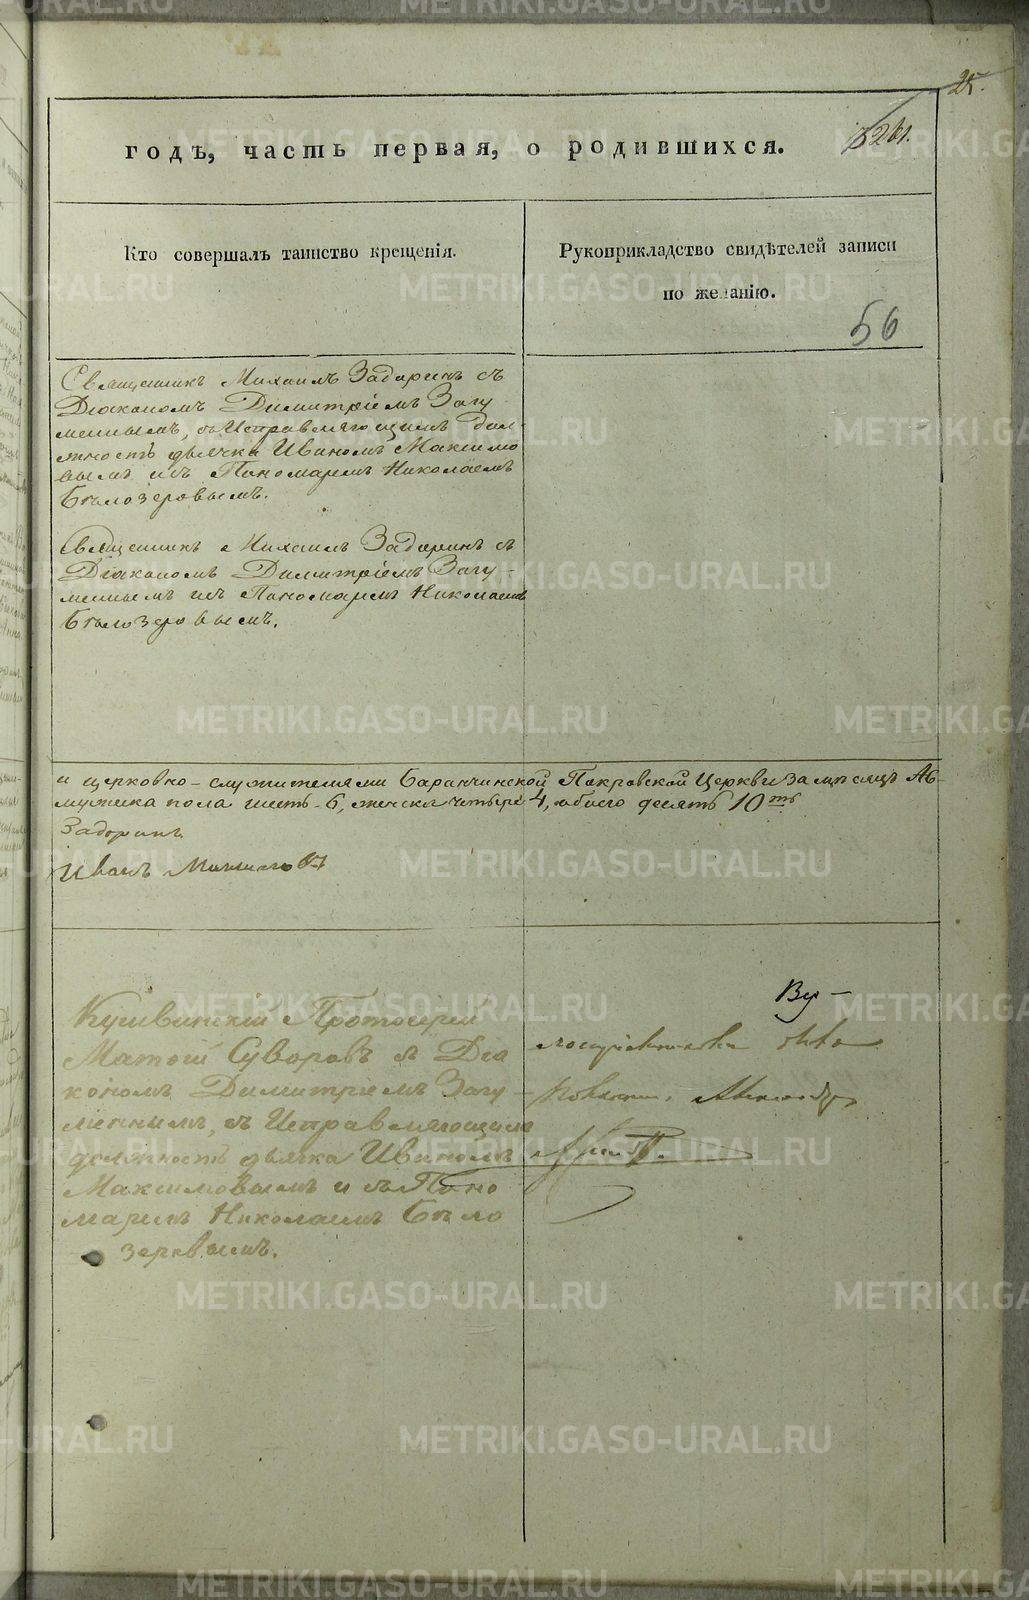 25.
261.
годъ, часть первая, о родившихся.
Кто совершалъ таинство крещенія.
Рукоприкладство свидѣтелей записи
по желанію.
56
Священникъ Михаилъ Задоринъ съ
Діакономъ Димитріемъ Загу
меннымъ, съ Исправляющимъ дол-
жность дьячка Иваномъ Максимо
вымъ и съ Пономаремъ Николаемъ
Бѣлозеровымъ.
Священникъ Михаилъ Задоринъ съ
Діакономъ Димитріемъ Загу-
меннымъ и съ Пономаремъ Николаемъ
Бѣлозеровымъ.
и церковно-служителями Баранчинской Покровской Церкви за мѣсяцъ Ав-
мужска пола шесть-6, женска четыре 4, обоего десять 10ть
Задоринъ
Иванъ Максимовъ
Кушвинскій Протоіерей
Матѳій Суворовъ съ Діа
кономъ Димитріемъ Загу-
меннымъ, съ Исправляющимъ
должность дьячка Иваномъ
Максимовымъ и съ Поно
маремъ Николаемъ Бѣло
зеровымъ.
METRIKI.GASO-URAL.RU